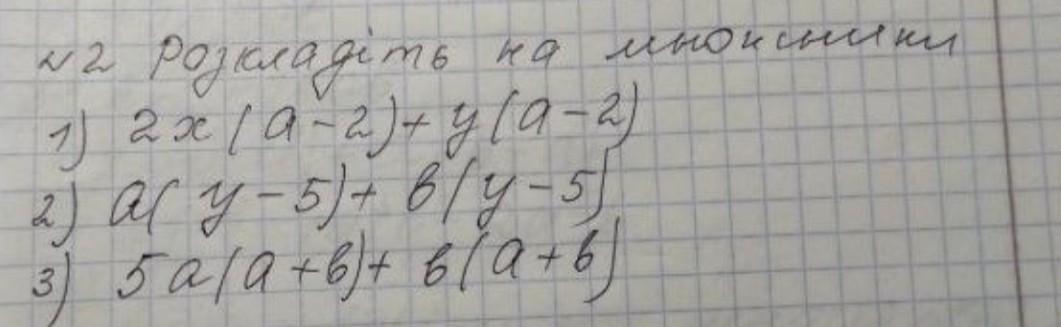 №2 Розкладіть на множники
1) 2x(a-2)+y(a-2)
2) a(y-5)+b(y-5)
3) 5a(a+b)+b(a+b)